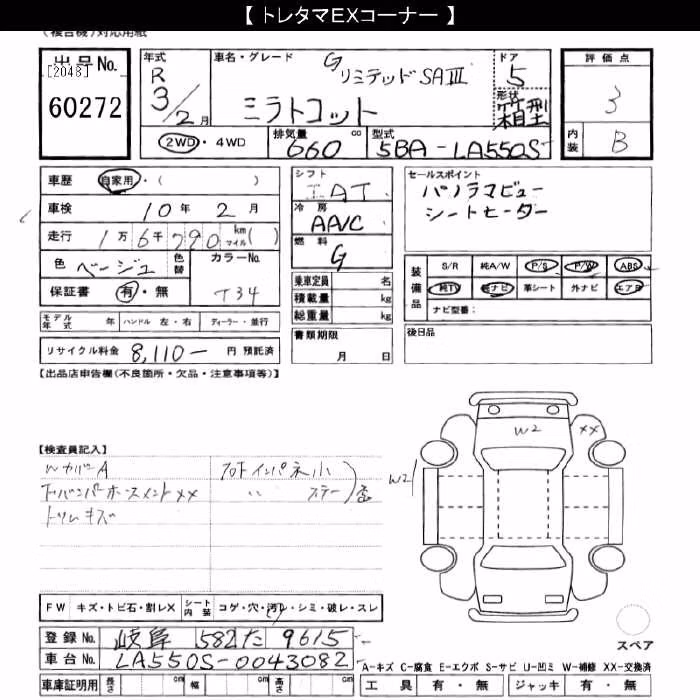 【 トレタマEXコーナー 】
(複合機)対応用紙
出品No.
[2048]
60272
年式
R
3/2月
車名・グレード
G リミテッド SAⅢ
ミラトコット
ドア
5
形状
箱型
評価点
3
内装
B
2WD・4WD
排気量 cc
660
型式
5BA-LA550S
車歴 自家用・( )
車検 10年 2月
走行 1万6千790 km マイル( )
色 ベージュ 色替
カラーNo.
T34
保証書 有・無
シフト
IAT
冷房
AAC
燃料
G
乗車定員 名
積載量 kg
総重量 kg
セールスポイント
パノラマビュー
シートヒーター
装備品
S/R 純A/W P/S P/W ABS
純TV 純ナビ 革シート 外ナビ エアB
ナビ型番:
モデル年式 年 ハンドル 左・右 ディーラー・並行
リサイクル料金 8,110- 円 預託済
書類期限
月 日
後日品
【出品店申告欄(不良箇所・欠品・注意事項等)】
【検査員記入】
WカバーA
フロトインパネ小
〃 ステー
歪
トリムキズ
W2
XX
W2
FW キズ・トビ石・割レX シート内装 コゲ・穴・汚レ・シミ・破レ・スレ
登録No. 岐阜 582 た 9615
車台No. LA550S-0043082
車庫証明用 長さ cm 幅 cm 高さ cm
スペア
A-キズ C-腐食 E-エクボ S-サビ U-凹ミ W-補修 XX-交換済
工具 有・無 ジャッキ 有・無